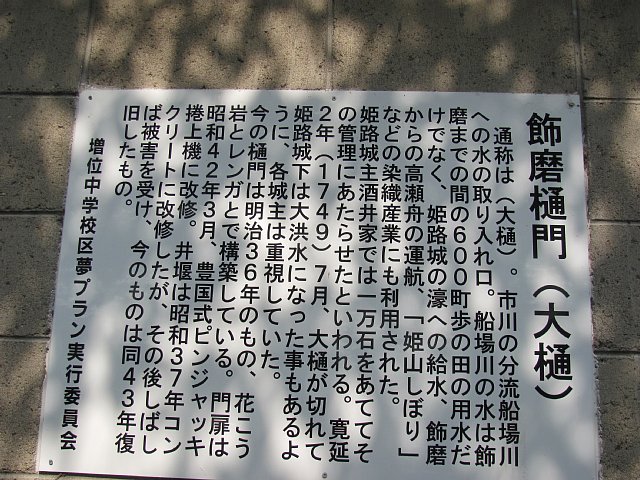 飾磨樋門（大樋）
通称は（大樋）。市川の分流船場川
への水の取り入れ口。船場川の水は飾
磨までの間の６００町歩の田の用水だ
けでなく、姫路城の濠への給水、飾磨
からの高瀬舟の運航、「姫山しぼり」
などの染織産業にも利用された。
姫路城主酒井家では一万石をあててそ
の管理にあたらせたといわれる。寛延
２年（１７４９）７月、大樋が切れて
姫路城下は大洪水になった事もあるよ
うに、各城主は重視していた。
今の樋門は明治３６年のもの、花こう
岩とレンガとで構築している。門扉は
昭和４２年３月、豊国式ピンジャッキ
捲上機に改修。井堰は昭和３７年コン
クリートに改修したが、その後しばし
ば被害を受け、今のものは同４３年復
旧したもの。
増位中学校区夢プラン実行委員会